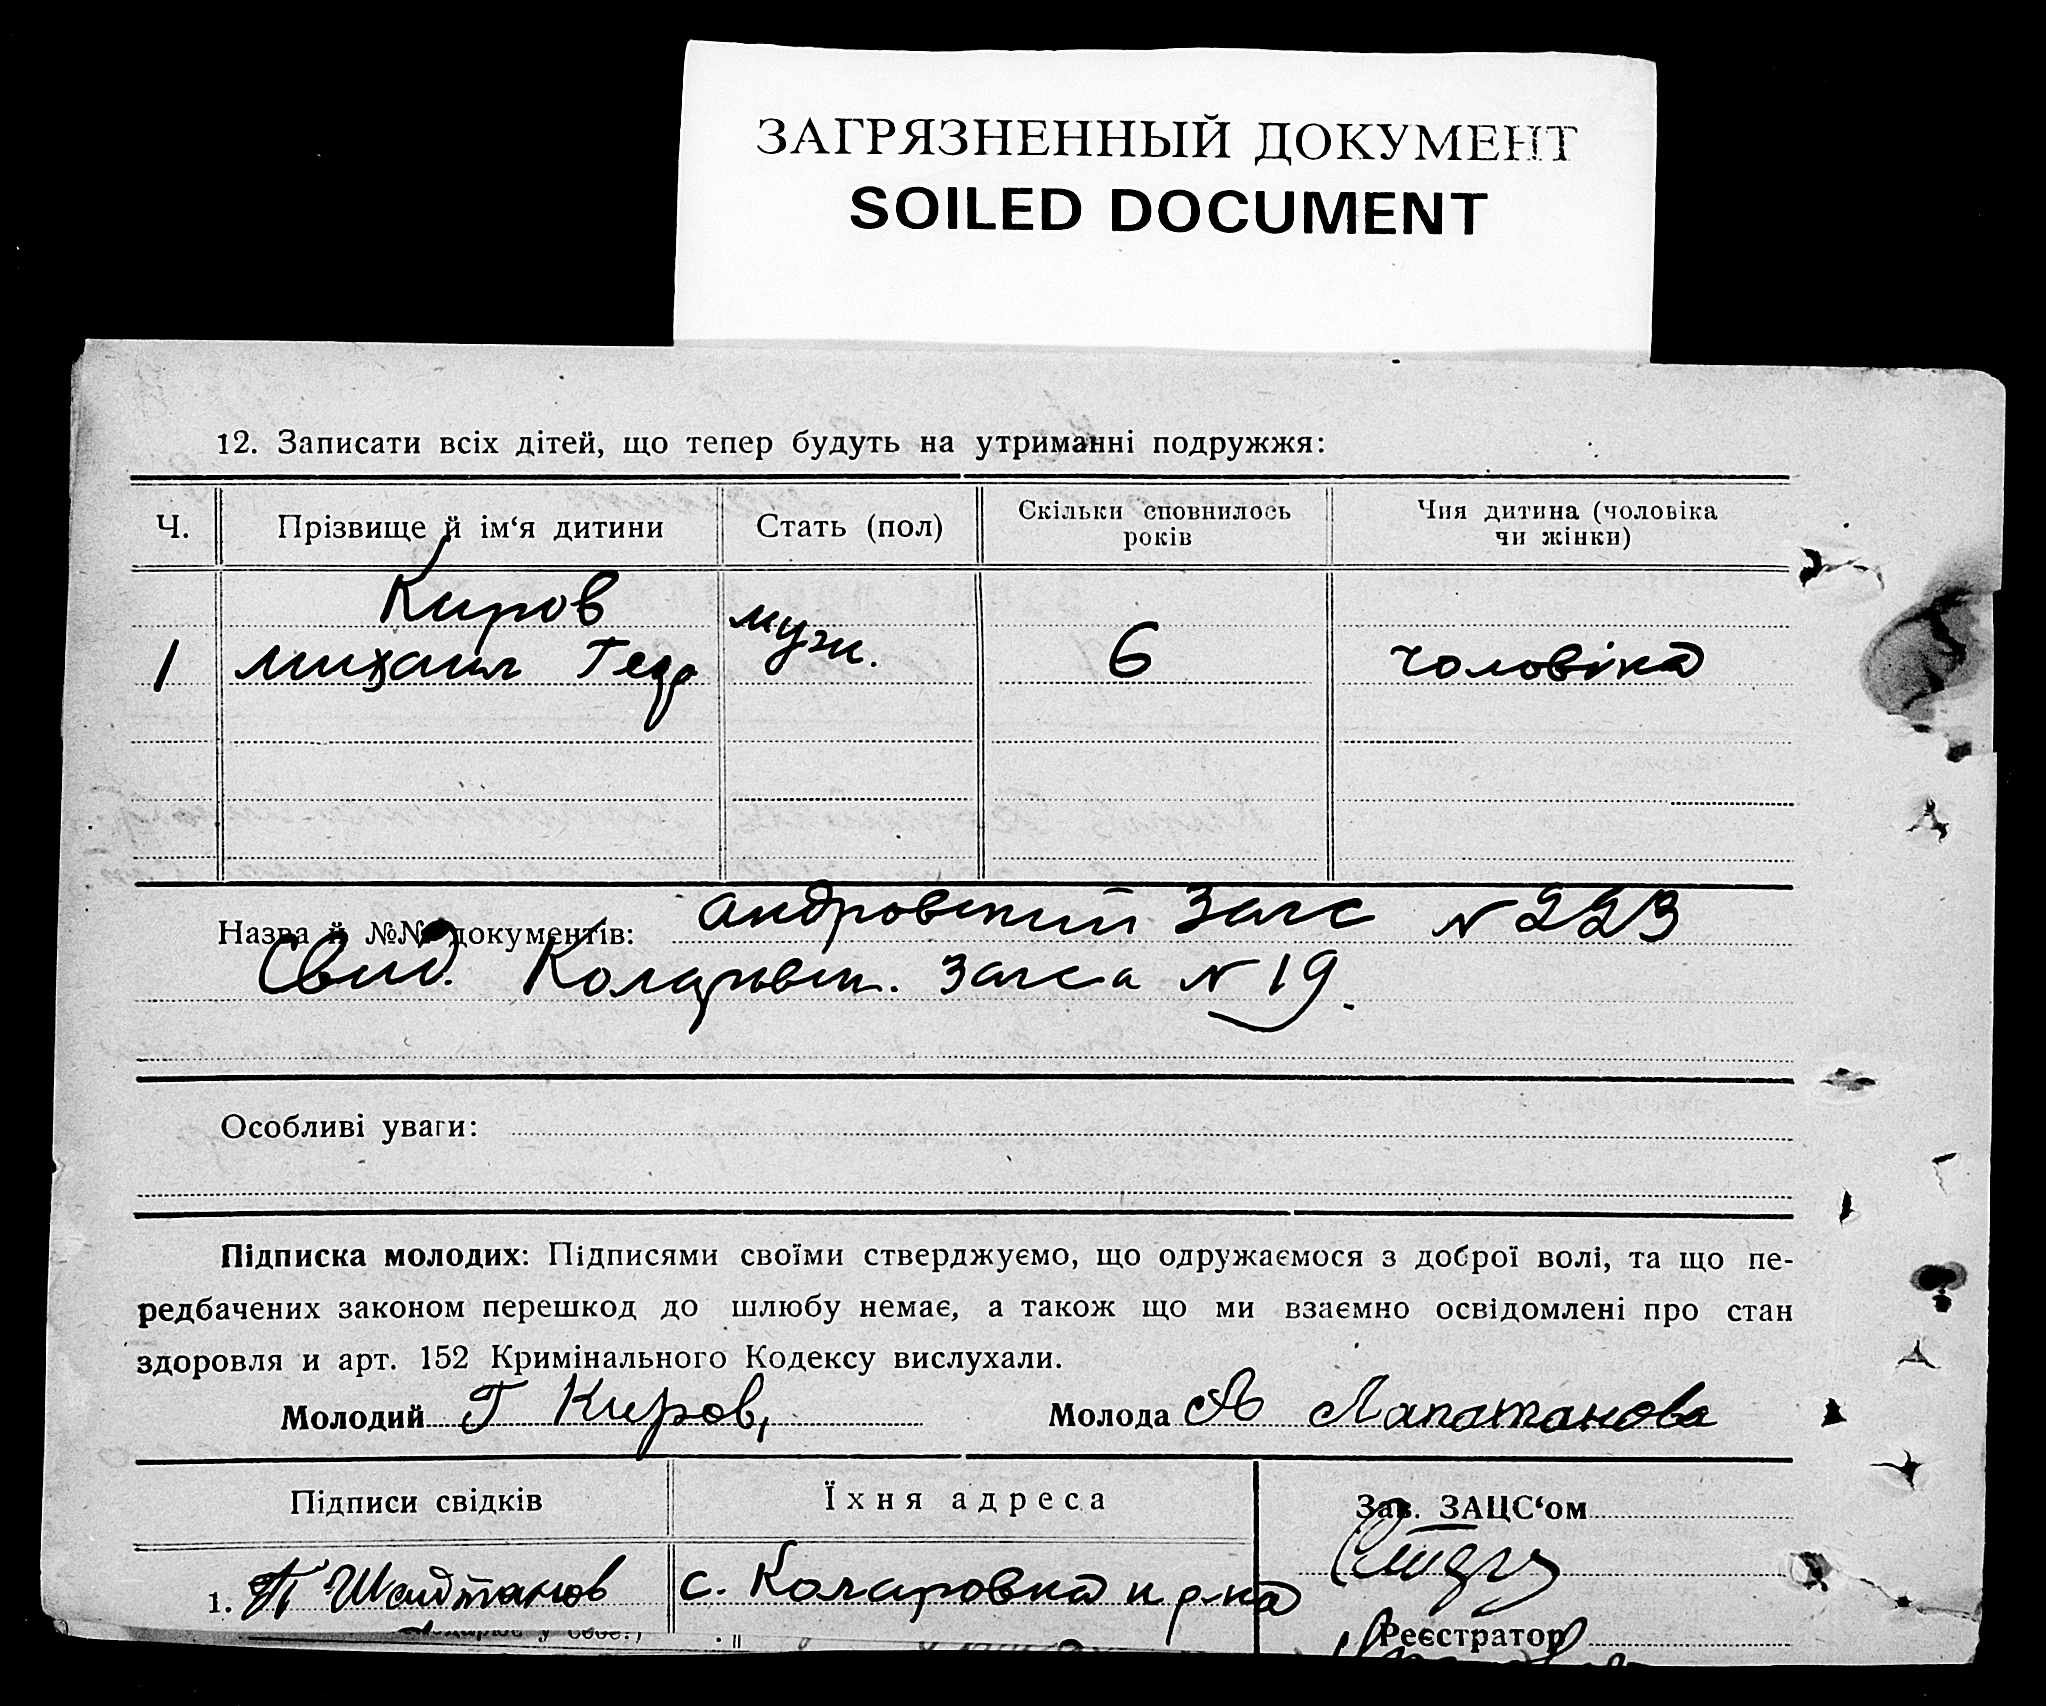 ЗАГРЯЗНЕННЫЙ ДОКУМЕНТ
SOILED DOCUMENT
12. Записати всіх дітей, що тепер будуть на утриманні подружжя:
Ч. Прізвище й ім‘я дитини Стать (пол) Скільки сповнилось років Чия дитина (чоловіка чи жінки)
Киров
1 михаил Геор муж. 6 чоловіка
Назва й №№ документів: андровский Загс N 223
Свид. Коларовск. загса N 19.
Особливі уваги:
Підписка молодих: Підписями своїми стверджуємо, що одружаємося з доброї волі, та що пе-
редбачених законом перешкод до шлюбу немає, а також що ми взаємно освідомлені про стан
здоровля и арт. 152 Кримінального Кодексу вислухали.
Молодий Г Киров, Молода Лапатанова
Підписи свідків Їхня адреса Зав. ЗАЦС‘ом
1. П Шайтанов с. Коларовка н р-на
Реєстратор